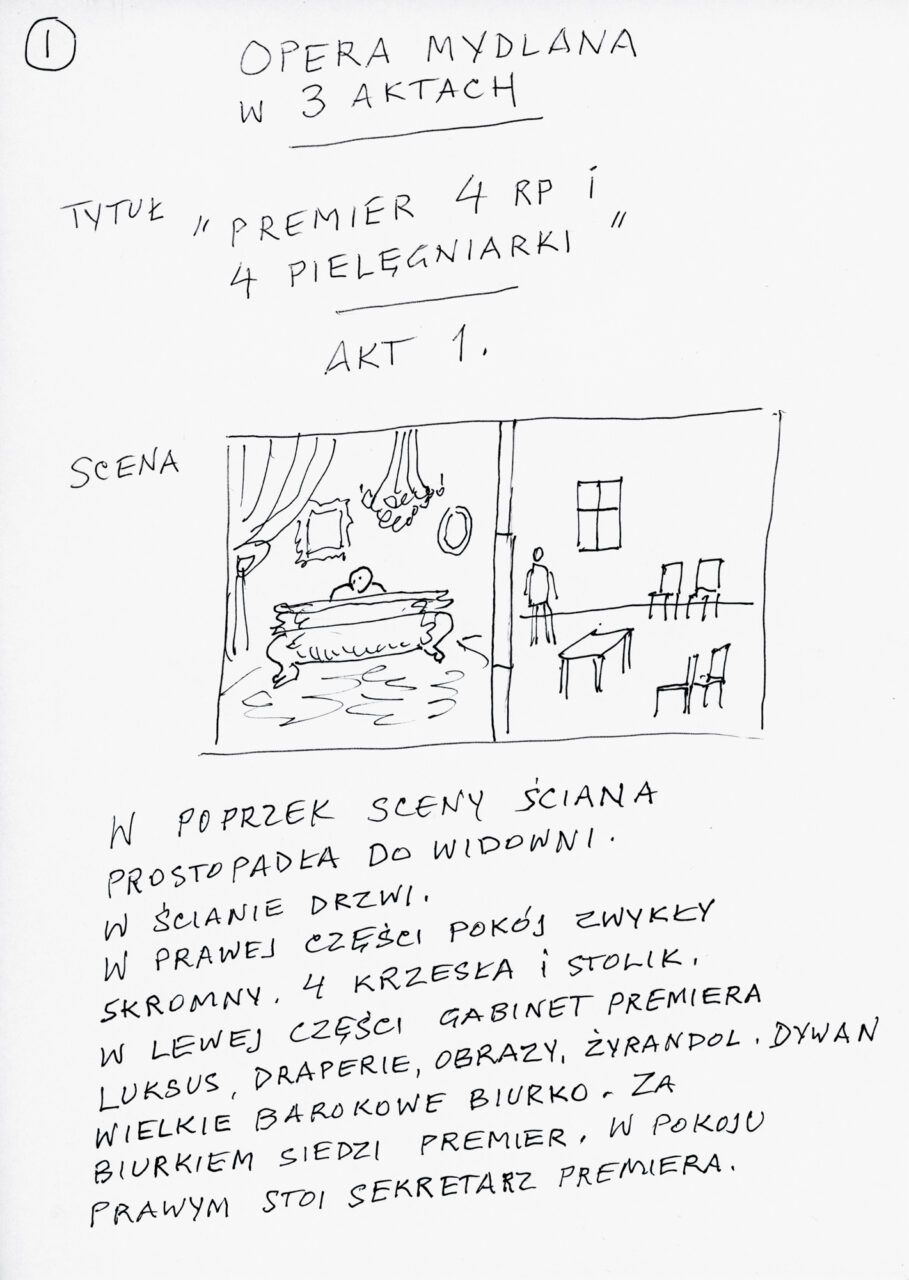 1
OPERA MYDLANA
W 3 AKTACH
TYTUŁ „PREMIER 4 RP i
4 PIELĘGNIARKI"
AKT 1.
SCENA
W POPRZEK SCENY ŚCIANA
PROSTOPADŁA DO WIDOWNI.
W ŚCIANIE DRZWI.
W PRAWEJ CZĘŚCI POKÓJ ZWYKŁY
SKROMNY. 4 KRZESŁA i STOLIK.
W LEWEJ CZĘŚCI GABINET PREMIERA
LUKSUS, DRAPERIE, OBRAZY, ŻYRANDOL. DYWAN
WIELKIE BAROKOWE BIURKO. ZA
BIURKIEM SIEDZI PREMIER. W POKOJU
PRAWYM STOI SEKRETARZ PREMIERA.